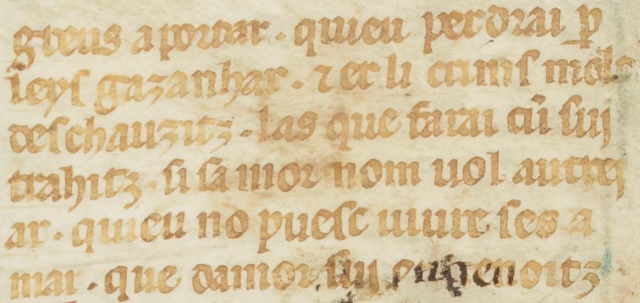 greus aportar · quieu perdrai p
leys gazanhar · ⁊ er li crims molt
deschauzitz · las que farai cū suy
trahitz · si samor nom uol autrey
ar · quieu no puesc uiure ses a
mar · que damor suy engenoitz